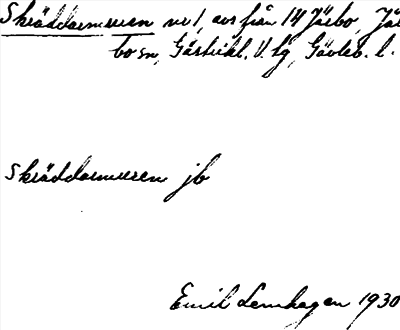 Skräddarmuren nr 1, avs från 14 Järbo, Jär
bo sn, Gästrikl. V. tg, Gävleb. l.
Skräddarmuren jb
Emil Lenhagen 1930